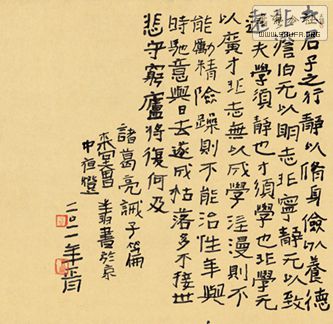 夫君子之行静以脩身儉以養德
非澹泊无以明志非寧静无以致
遠夫學須静也才須學也非學元
以廣才非志無以成學淫漫則不
能勵精險躁則不能治性年與
時馳意與日去遂成枯落多不接世
悲守窮廬將復何及
諸葛亮誡子
書於京
中
二〇一一年